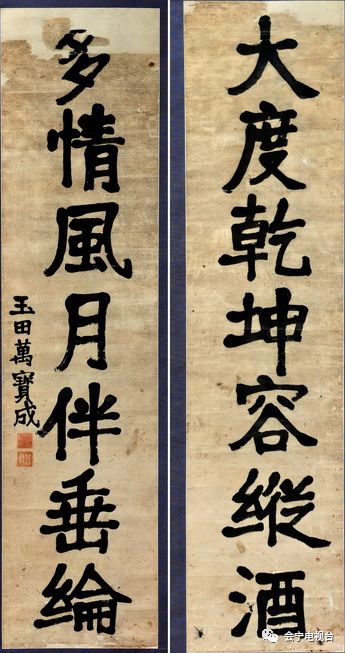 大度乾坤容縱酒
多情風月伴垂綸
玉田萬寶成
会宁电视台